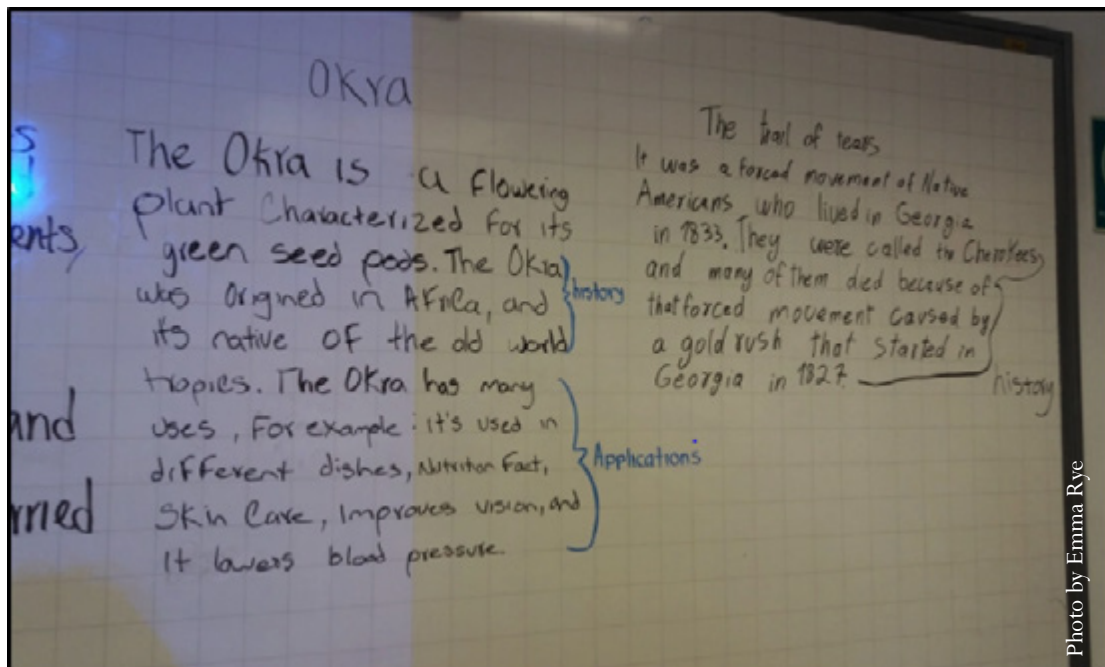 s
ents,
and
rned
Okra
The Okra is a flowering
plant Characterized for its
green seed pods. The Okra
was Origined in Africa, and
it's native of the old world
tropics. The Okra has many
uses, For example: it's used in
different dishes, Nutrition Fact,
Skin Care, Improves vision, and
It lowers blood pressure.
history
Applications
The trail of tears
It was a forced movement of Native
Americans who lived in Georgia
in 1833. They were called the Cherokees
and many of them died because of
that forced movement caused by
a gold rush that started in
Georgia in 1827.
history
Photo by Emma Rye